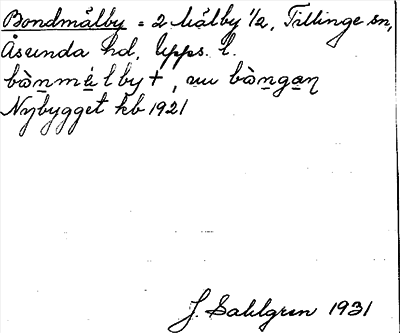 Bondmälby = 2 Mälby 1/2, Tillinge sn,
Åsunda hd, Upps. l.
bònmè̱lby +, nu bòngan̥
Nybygget kb 1921
J. Sahlgren 1931